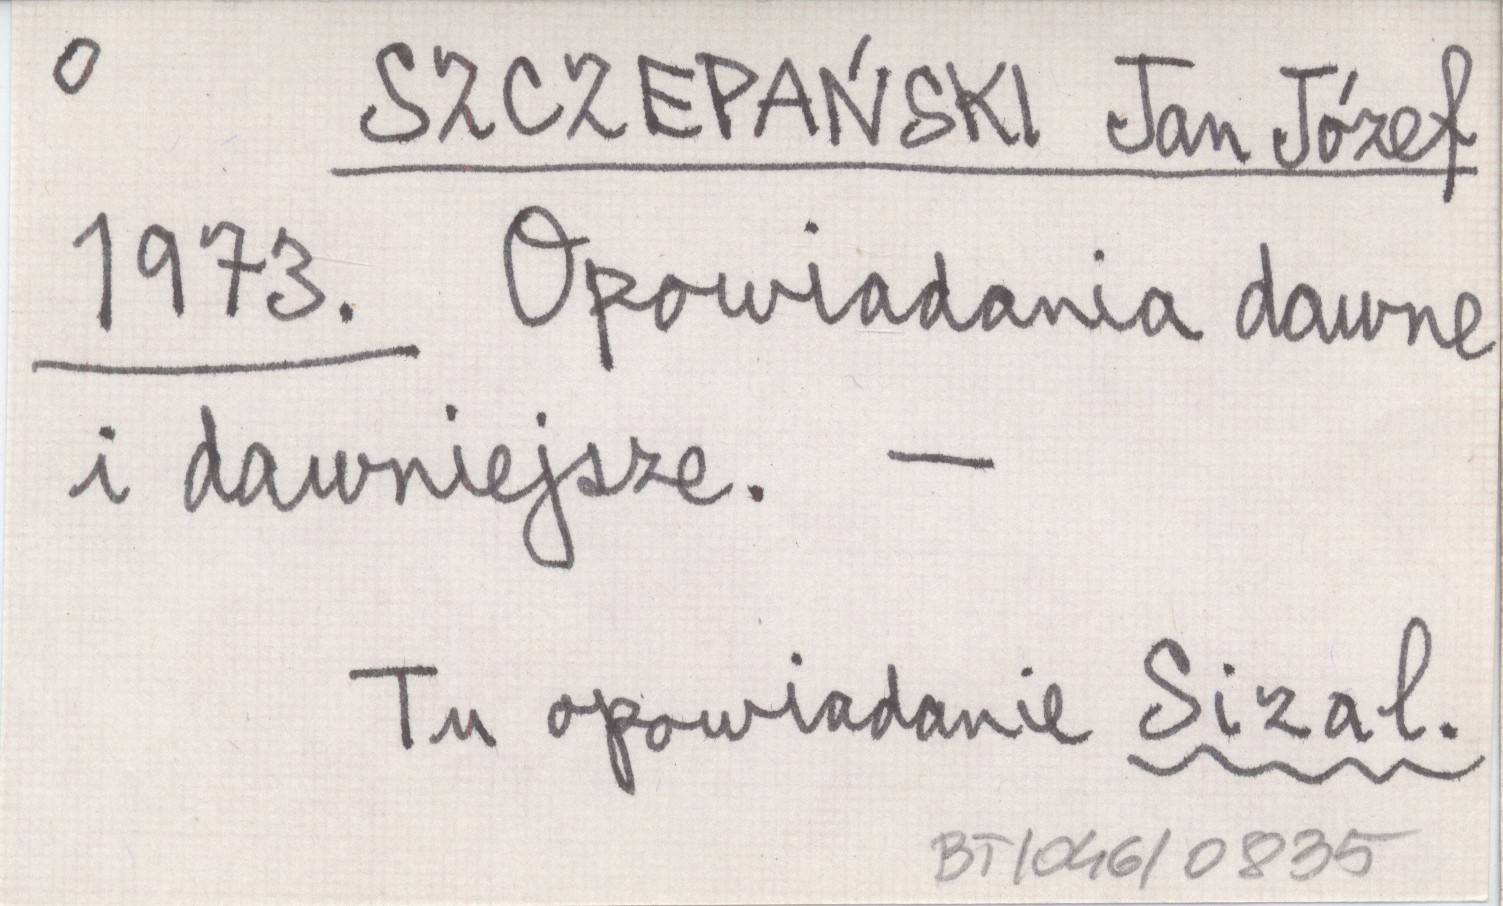 o SZCZEPAŃSKI Jan Józef
1973. Opowiadania dawne
i dawniejsze. —
Tu opowiadanie Sizal.
BT/046/0835